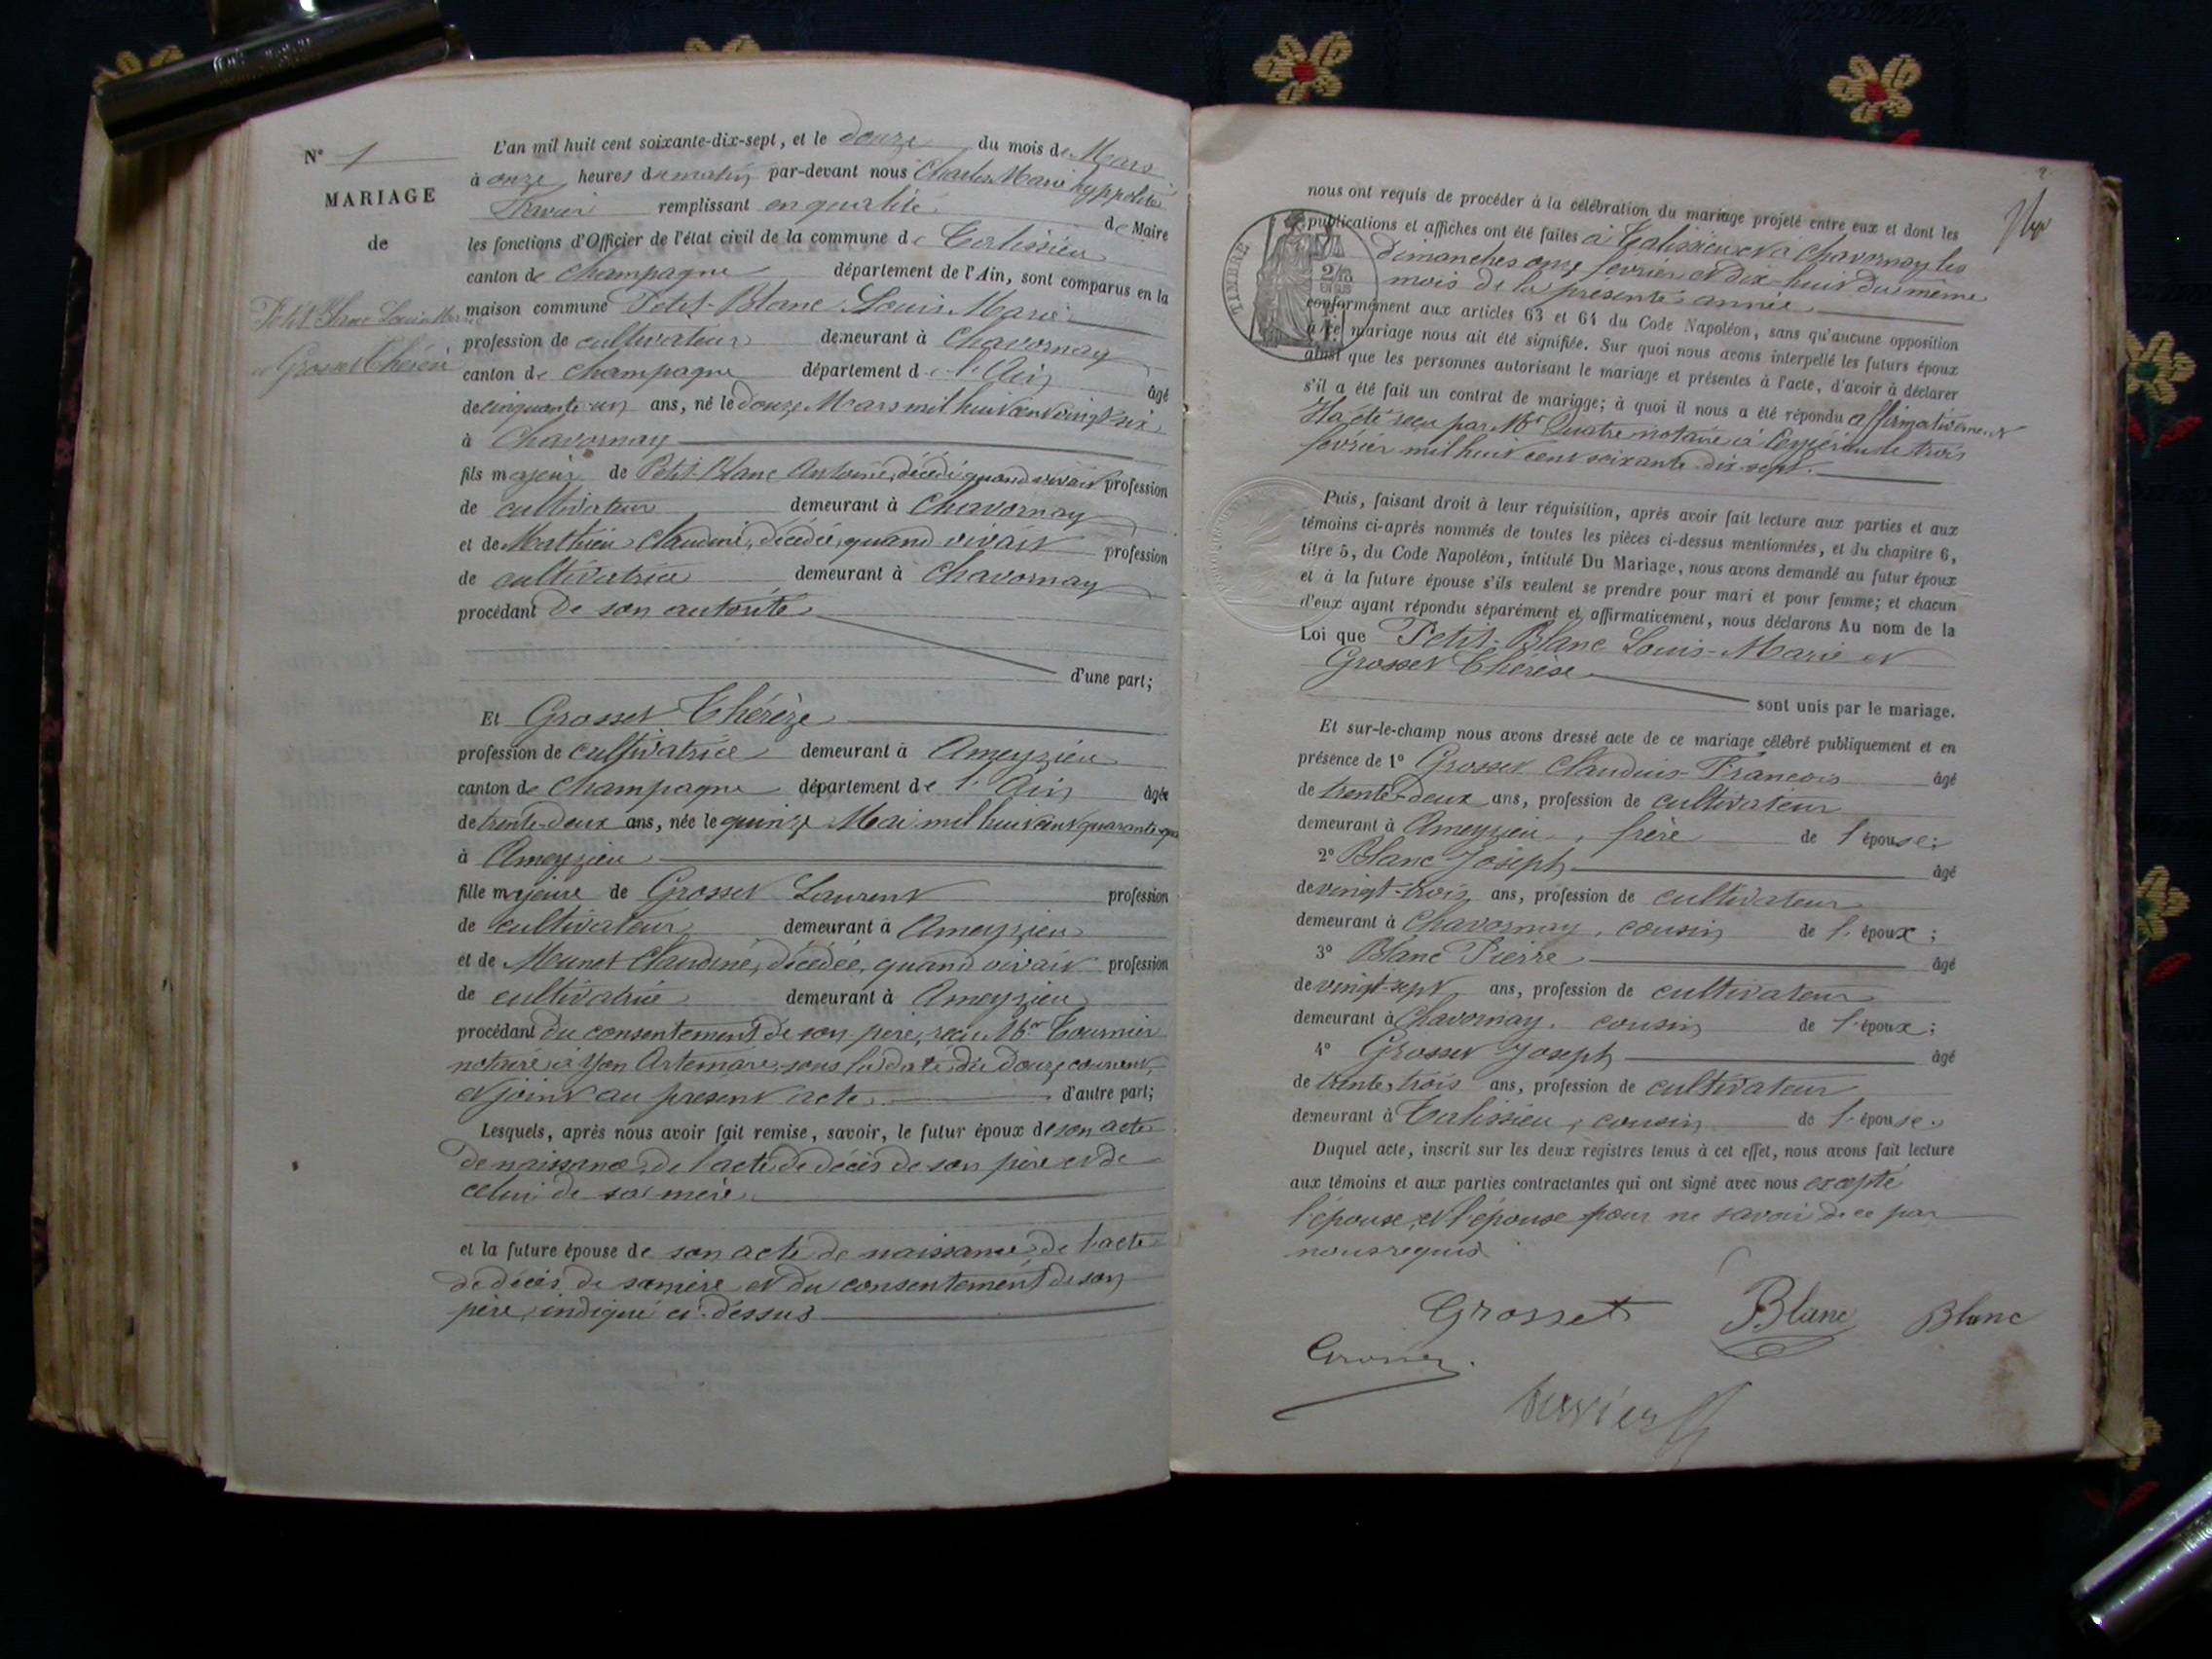 N° 1
MARIAGE
de
Petit Blanc Louis Marie
et Grosset Thérèse
L'an mil huit cent soixante-dix-sept, et le douze du mois de Mars
à onze heures du matin par-devant nous Charles Marie hyppolite
remplissant en qualité de Maire
les fonctions d'Officier de l'état civil de la commune de Talissieu
canton de Champagne département de l'Ain, sont comparus en la
maison commune Petit-Blanc Louis-Marie
profession de cultivateur demeurant à Chavornay
canton de Champagne département de l'Ain âgé
de cinquante-un ans, né le douze Mars mil huit cent vingt-six
à Chavornay
fils majeur de Petit-Blanc Antoine, décédé, quand vivait profession
de cultivateur demeurant à Chavornay
et de Mathieu Claudine, décédée, quand vivait profession
de cultivatrice demeurant à Chavornay
procédant de son autorité
d'une part;
Et Grosset Thérèze
profession de cultivatrice demeurant à Ameyzieu
canton de Champagne département de l'Ain âgée
de trente-deux ans, née le quinze Mai mil huit cent quarante-qua
à Ameyzieu
fille majeure de Grosset Laurent profession
de cultivateur demeurant à Ameyzieu
et de Munet Claudine, décédée, quand vivait profession
de cultivatrice demeurant à Ameyzieu
procédant du consentement de son père, reçu Mr Tournier
notaire à Yon Artemare, sous la date du douze courant,
et joint au présent acte d'autre part;
Lesquels, après nous avoir fait remise, savoir, le futur époux de son acte
de naissance, de l'acte de décès de son père et de
celui de sa mère
et la future épouse de son acte de naissance de l'acte
de décès de sa mère et du consentement de son
père, indiqué ci-dessus
2
nous ont requis de procéder à la célébration du mariage projeté entre eux et dont les
publications et affiches ont été faites à Talissieu et à Chavornay les
dimanches onze février et dix-huit du même
mois de la présente année
conformément aux articles 63 et 64 du Code Napoléon, sans qu'aucune opposition
à ce mariage nous ait été signifiée. Sur quoi nous avons interpellé les futurs époux
ainsi que les personnes autorisant le mariage et présentes à l'acte, d'avoir à déclarer
s'il a été fait un contrat de mariage; à quoi il nous a été répondu affirmativement
Il a été reçu par Mr Quatre notaire à le trois
février mil huit cent soixante-dix-sept.
TIMBRE
Puis, faisant droit à leur réquisition, après avoir fait lecture aux parties et aux
témoins ci-après nommés de toutes les pièces ci-dessus mentionnées, et du chapitre 6,
titre 5, du Code Napoléon, intitulé Du Mariage, nous avons demandé au futur époux
et à la future épouse s'ils veulent se prendre pour mari et pour femme; et chacun
d'eux ayant répondu séparément et affirmativement, nous déclarons Au nom de la
Loi que Petit-Blanc Louis-Marie et
Grosset Thérèse
sont unis par le mariage.
Et sur-le-champ nous avons dressé acte de ce mariage célébré publiquement et en
présence de 1° Grosset Claudius-François âgé
de trente-deux ans, profession de cultivateur
demeurant à Ameyzieu, frère de l'épouse;
2° Blanc Joseph âgé
de vingt-trois ans, profession de cultivateur
demeurant à Chavornay, cousin de l'époux;
3° Blanc Pierre âgé
de vingt-sept ans, profession de cultivateur
demeurant à Chavornay, cousin de l'époux;
4° Grosset Joseph âgé
de trente-trois ans, profession de cultivateur
demeurant à Talissieu, cousin de l'épouse.
Duquel acte, inscrit sur les deux registres tenus à cet effet, nous avons fait lecture
aux témoins et aux parties contractantes qui ont signé avec nous excepté
l'épouse, et l'épouse pour ne savoir de ce par
nous requis
Grosset Blanc Blanc
Grosset